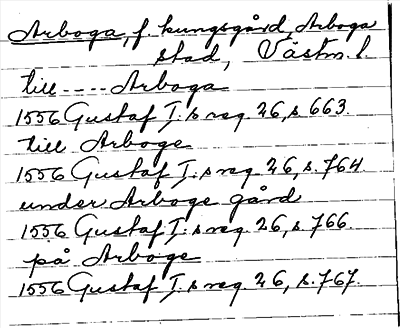 Arboga, f. kungsgård, Arboga
stad, Västm. l.
till ---- Arboga
1556 Gustaf I:s reg. 26, s. 663.
till Arboge
1556 Gustaf I:s reg. 26, s. 764.
under Arboge gård
1556 Gustaf I:s reg. 26, s. 766.
på Arboge
1556 Gustaf I:s reg. 26, s. 767.